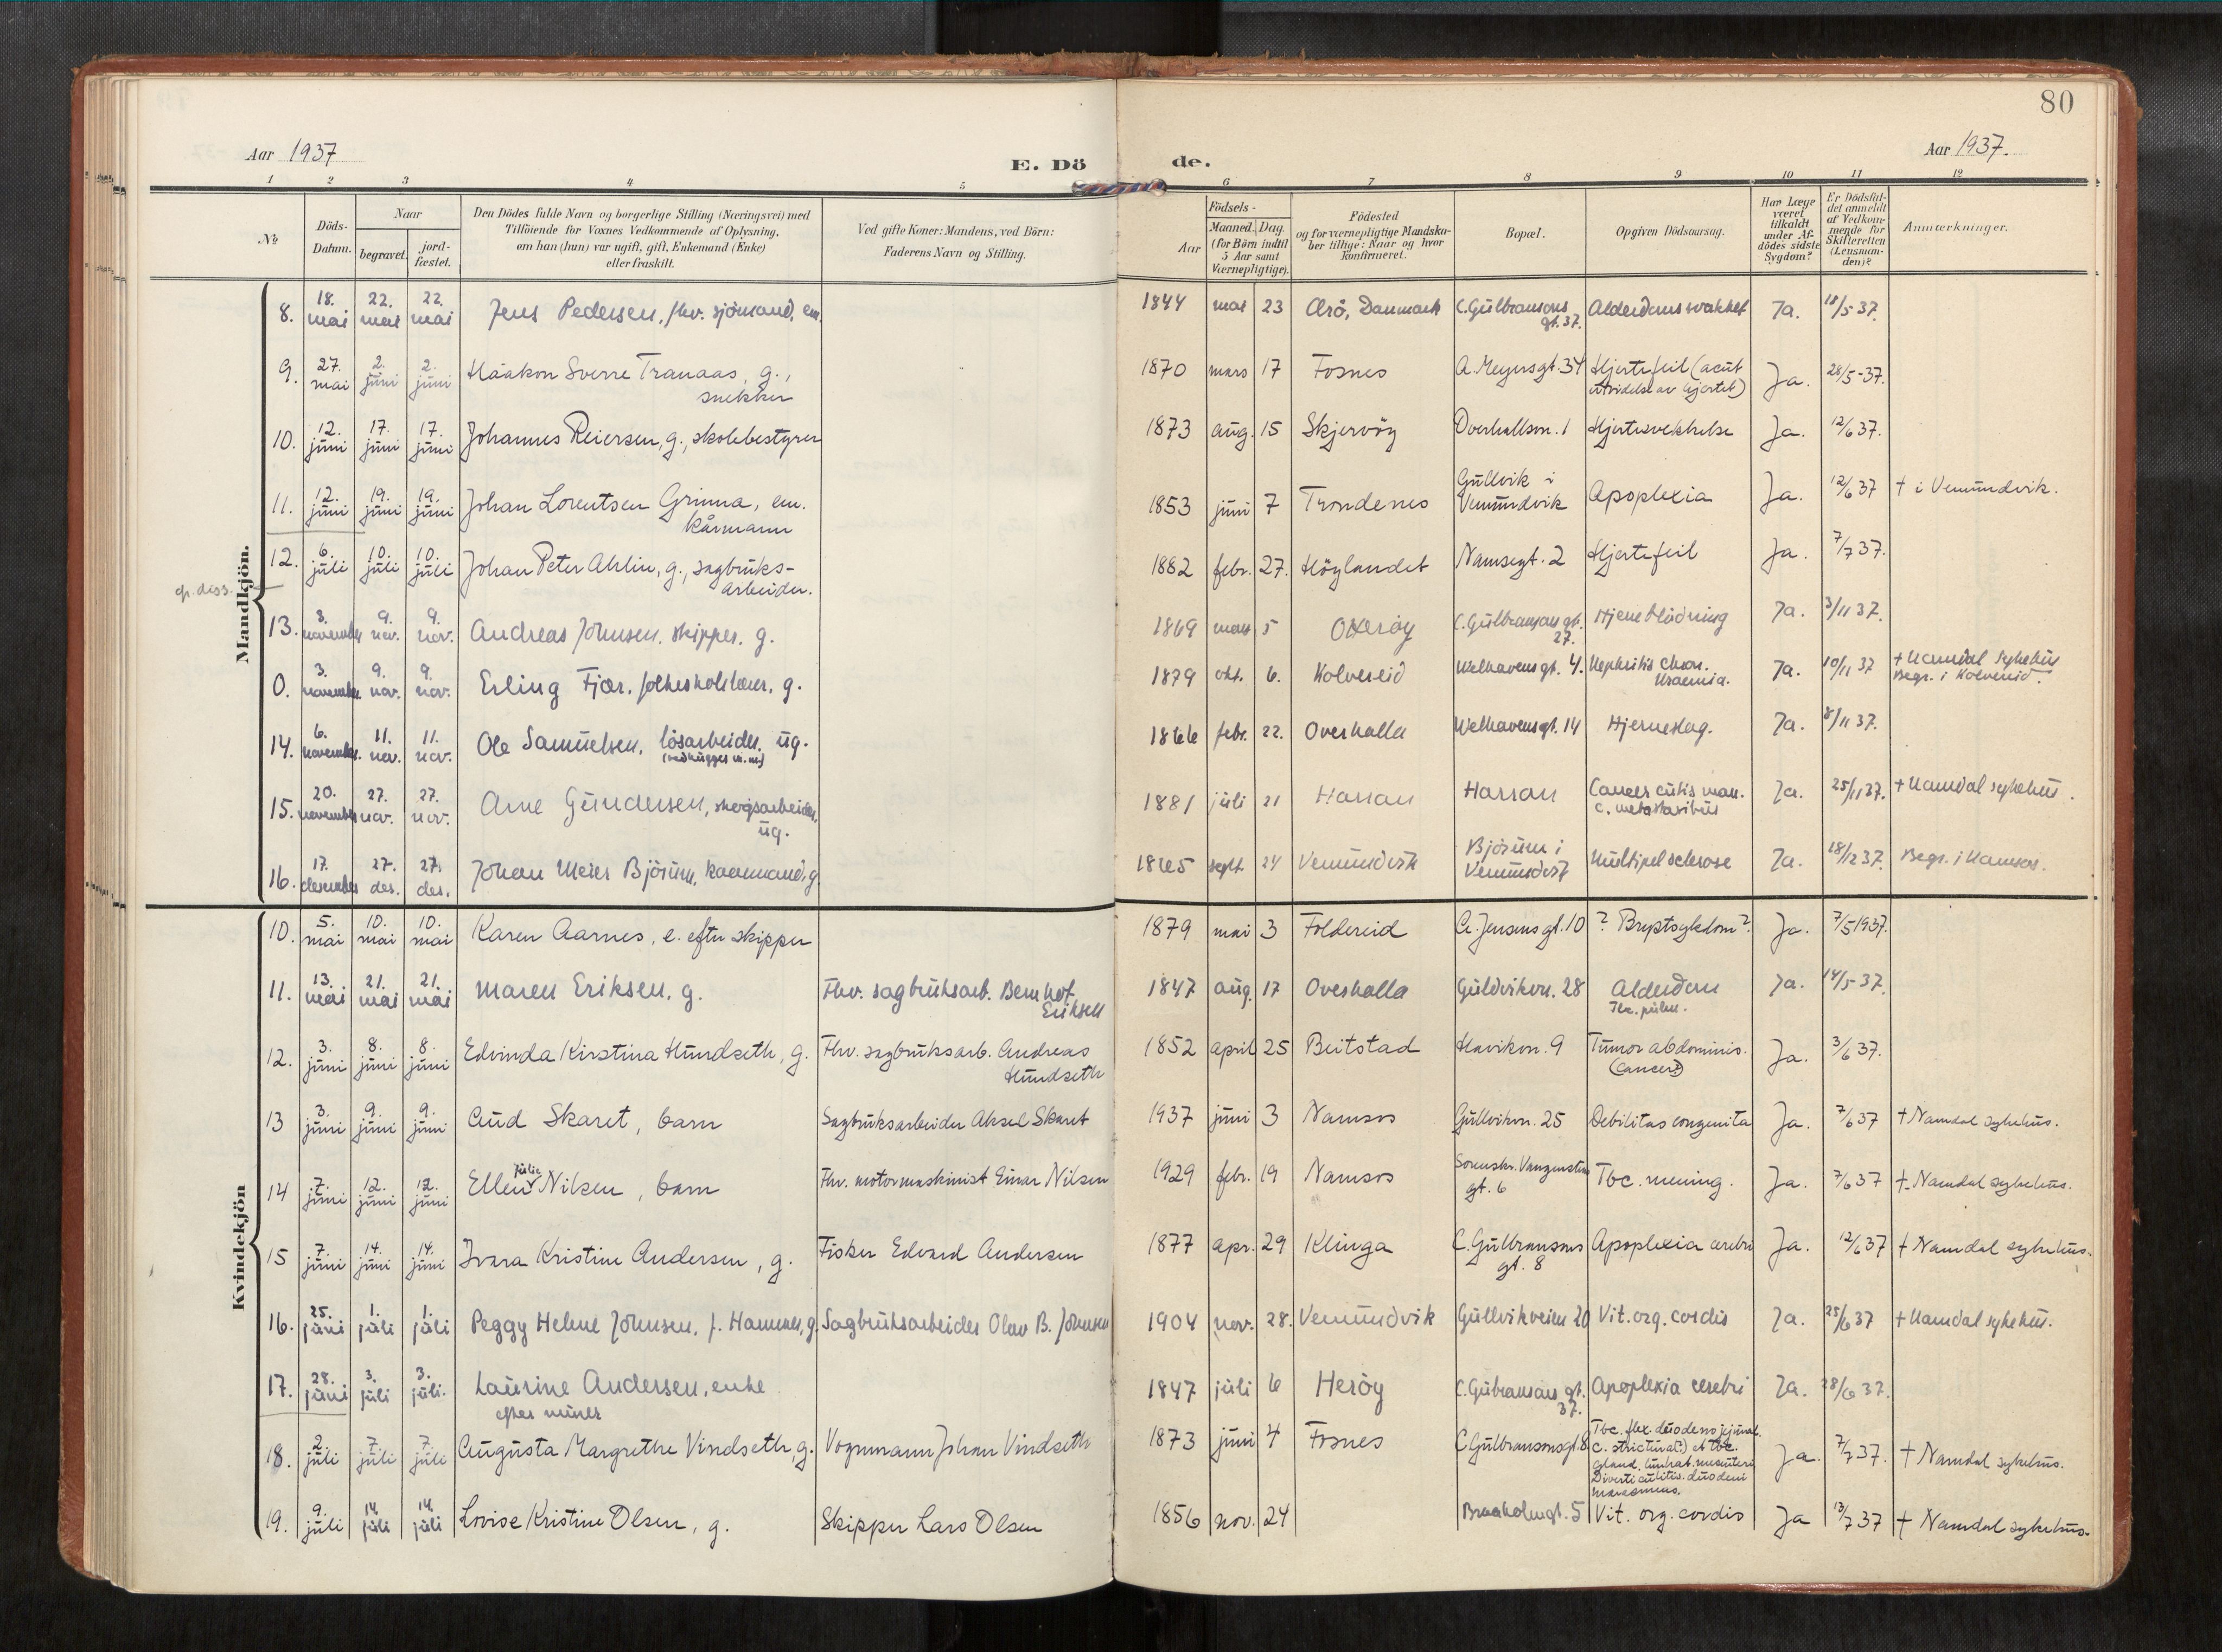 80
Aar 1937
E. Dö de.
Aar 1937.
1 2 3 4 5 6 7 8 9 10 11 12
No
Döds-Datum.
Naar
begravet.
jord-fæstet.
Den Dödes fulde Navn og borgerlige Stilling (Næringsvei) med
Tilföiende for Voxnes Vedkommende af Oplysning,
om han (hun) var ugift, gift, Enkemand (Enke)
eller fraskilt.
Ved gifte Koner: Mandens, ved Börn:
Faderens Navn og Stilling.
Födsels-
Aar
Maaned. Dag.
(for Börn indtil
5 Aar samt
Værnepligtige).
Födested
og for værnepligtige Mandska-
ber tillige: Naar og hvor
konfirmeret.
Bopæl.
Opgiven Dödsaarsag.
Har Læge
været
tilkaldt
under Af-
dödes sidste
Sygdom?
Er Dödsfal-
det anmeldt
af Vedkom-
mende for
Skifteretten
(Lensman-
den)?
Anmærkninger.
Mandkjön.
8. 18. mai 22. mai 22. mai Jens Pedersen, fhv. sjömand, em. 1844 mai 23 Ærö, Danmark C. Gülbransons gt. 37. Alderdomssvakhet Ja. 18/5 37.
9. 27. mai 2. jüni 2. jüni Håakon Sverre Tranaas, g., snekker 1870 mars 17 Fosnes A. Meyersgt. 34 Hjertefeil (acüt utvidelse av hjertet) Ja. 28/5-37.
10. 12. jüni 17. jüni 17. jüni Johannes Reiersen, g., skolebestyrer 1873 aüg. 15 Skjervöy Overhallsvn. 1 Hjertesvekkelse Ja. 12/6 37.
11. 12. jüni 19. jüni 19. jüni Johan Lorentsen Grinna, em. kårmann 1853 jüni 7 Trondenes Güllvik i Vemündvik Apoplexia Ja. 12/6 37 † i Vemündvik.
12. 6. jüli 10. jüli 10. jüli Johan Peter Ahlin, g., sagbrüks-arbeider. 1882 febr. 27. Höylandet Namsegt. 2 Hjertefeil Ja. 7/7 37.
13. 3. november 9. nov. 9. nov. Andreas Johnsen. skipper. g. 1869 mars 5 Otteröy C. Gülbransons gt. 27. Hjerneblödning Ja. 3/11 37.
0. 3. november 9. nov. 9. nov. Erling Fjær. folkeskolelærer. g. 1879 okt. 6. Kolvereid Welhavens gt. 4. Nephritis chron. Uraemia. Ja. 10/11 37 † Namdal sykehüs Begr. i Kolvereid.
14. 6. november. 11. nov. 11. nov. Ole Samüelsen, lösarbeider, üg. (vedhügger m.m.) 1866 febr. 22. Overhalla Welhavensgt. 14 Hjerneslag. Ja. 8/11 37.
15. 20. november 27. nov. 27. nov. Arne Gündersen, skogsarbeider, üg. 1881 jüli 21 Harran Harran Cancer cütis man. c. metastasibüs Ja. 25/11 37. † Namdal sykehüs.
16. 17. desember 27. des. 27. des. Johan Meier Björüm, kaarmand, g 1865 sept. 24 Vemündvik Björüm i Vemündvik Mültipel sclerose Ja. 18/12 37. Begr. i Namsos.
Kvindekjön
10. 5. mai 10. mai 10. mai Karen Aarnes, e. efter skipper 1879 mai 3 Foldereid A. Jensens gt. 10 ? Brystsykdom? Ja. 7/5 1937.
11. 13. mai 21. mai 21. mai Maren Eriksen, g. Fhv. sagbrüksarb. Bernhof Eriksen 1847 aüg. 17 Overhalla Güldvikvn. 28 Alderdom Tbc. pülm. Ja. 14/5-37.
12. 3. jüni 8. jüni 8. jüni Edvinda Kirstina Hündseth, g. Fhv. sagbrüksarb. Andreas Hündseth 1852 april 25 Beitstad Havikvn. 9 Tümor abdominis. (Cancer?) Ja. 3/6 37.
13 3. jüni 9. jüni 9. jüni Aüd Skaret, barn Sagbrüksarbeider Aksel Skaret 1937 jüni 3 Namsos Güllvikvn. 25 Debilitas congenita Ja. 7/6 37 † Namdal sykehüs.
14 7. jüni 12. jüni 12. jüni Ellen Jülie Nilsen, barn Fhv. motormaskinist Einar Nilsen 1929 febr. 19 Namsos gt. 6 Tbc. mening. Ja. 7/6 37 † Namdal sykehüs.
15 7. jüni 14. jüni 14. jüni Ivara Kristine Andersen, g. Fisker Edvard Andersen 1877 apr. 29 Klinga C. Gülbransons gt. 8 Apoplexia cerebri Ja. 12/6 37 † Namdal sykehüs.
16. 25. jüni 1. jüli 1. jüli Peggy Helene Johnsen, f. Hammer, g. Sagbrüksarbeider Olav B. Johnsen 1904 nov. 28. Vemündvik Güllvikveien 20 Vit. org. cordis Ja. 25/6 37 † Namdal sykehüs.
17. 28. jüni 3. jüli 3. jüli. Laürine Andersen, enke efter mürer 1847 jüli 6 Heröy C. Gülbransons gt. 37. Apoplexia cerebri Ja. 28/6 37.
18. 2. jüli 7. jüli 7. jüli Aügüsta Margrethe Vindseth, g. Vognmann Johan Vindseth 1873 jüni 4 Fosnes C. Gülbransonsgt. 8 Tbc. flex. düodeno jejünal. c. strictüra(?) et tbc. gland. mesenteri Diverticülitis düodeni marasmüs. Ja. 7/7 37. † Namdal sykehüs.
19. 9. jüli 14. jüli 14. jüli Lovise Kristine Olsen, g. Skipper Lars Olsen 1856 nov. 24 Braaholmgt. 5 Vit. org. cordis Ja 13/7 37 † Namdal sykehüs.